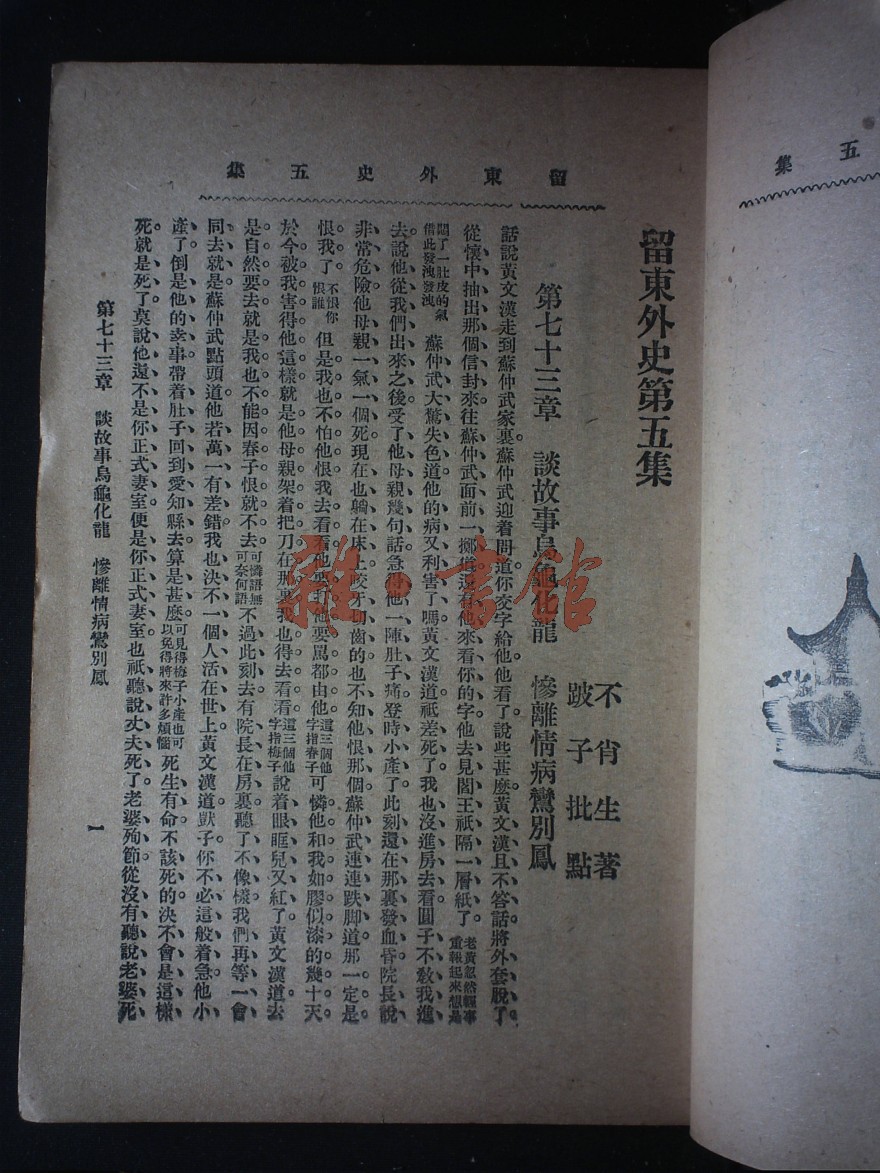 留東外史五集
留東外史第五集
不肖生著
跛子批點
第七十三章　談故事烏龜化龍　慘離情病鸞別鳳
話說黃文漢走到蘇仲武家裏蘇仲武迎着問道你交字給他他看了說些甚麼黃文漢且不答話將外套脫了
從懷中抽出那個信封來往蘇仲武面前一擲道還有他來看你的字他去見閻王祇隔一層紙了老黃忽然輕事重報起來想是
悶了一肚皮的氣借此發洩發洩蘇仲武大驚失色道他的病又利害了嗎黃文漢道祇差死了我也沒進房去看圓子不敎我進
去說他從我們出來之後受了他母親幾句話急得他一陣肚子痛登時小產了此刻還在那裏發血昏院長說
非常危險他母親一氣一個死現在也躺在床上咬牙切齒的也不知他恨那個蘇仲武連連跌脚道那一定是
恨我了不恨你恨誰但是我也不怕他恨我去看看他要打他要罵都由他這三個他字指春子可憐他和我如膠似漆的幾十天
於今被我害得他這樣就是他母親架着把刀在那裏我也得去看看這三個他字指梅子說着眼眶兒又紅了黃文漢道去
是自然要去就是我也不能因春子恨就不去可憐語無可奈何語不過此刻去有院長在房裏聽了不像樣我們再等一會
同去就是蘇仲武點頭道他若萬一有差錯我也決不一個人活在世上黃文漢道獃子你不必這般着急他小
產了倒是他的幸事帶着肚子回到愛知縣去算是甚麼可見得梅子小產也可以免得將來許多煩惱死生有命不該死的決不會是這樣
死就是死了莫說他還不是你正式妻室便是你正式妻室也祇聽說丈夫死了老婆殉節從沒有聽說老婆死
第七十三章　談故事烏龜化龍　慘離情病鸞別鳳
一
五集
雜·書館